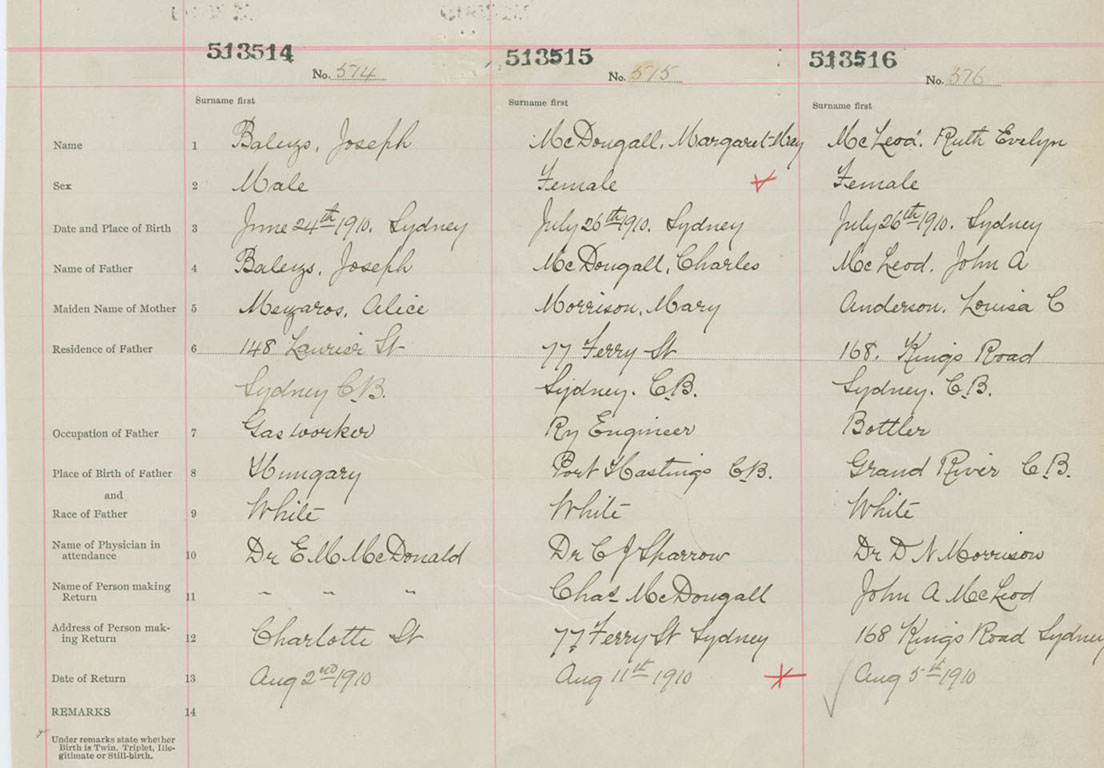 513514 513515 513516
No. 574 No. 575 No. 576
Surname first Surname first Surname first
Name 1 Baleyzs, Joseph McDougall, Margaret Mary McLeod. Ruth Evelyn
Sex 2 Male Female Female
Date and Place of Birth 3 June 24th 1910. Sydney July 26th 1910. Sydney July 26th 1910. Sydney
Name of Father 4 Joseph McDougall, Charles McLeod. John A
Maiden Name of Mother 5 Alice Morrison, Mary Anderson. Louisa C
Residence of Father 6 148 Laurier St 77 Ferry St 168. Kings Road
Sydney C.B. Sydney. C.B. Sydney. C.B.
Occupation of Father 7 Gas worker Ry Engineer Bottler
Place of Birth of Father 8 Hungary Port Hastings C.B. Grand River C.B.
and
Race of Father 9 White White White
Name of Physician in
attendance 10 Dr E M McDonald Dr C J Sparrow Dr D N Morrison
Name of Person making
Return 11 " " " Chas McDougall John A McLeod
Address of Person mak-
ing Return 12 Charlotte St 77 Ferry St Sydney 168 Kings Road Sydney
Date of Return 13 Aug 2nd 1910 Aug 11th 1910 Aug 5th 1910
REMARKS 14
Under remarks state whether
Birth is Twin, Triplet, Ille-
gitimate or Still-birth.